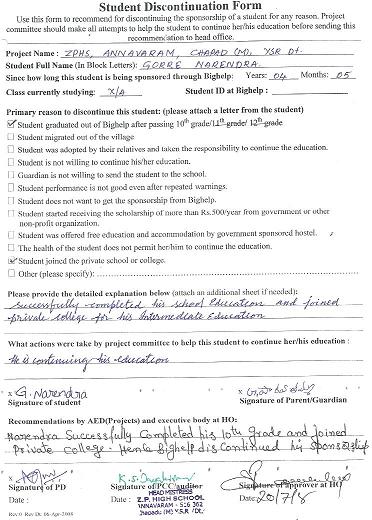 Student Discontinuation Form
Use this form to recommend for discontinuing the sponsorship of a student for any reason. Project
committee should make all attempts to help the student to continue her/his education before sending this
recommendation to head office.
Project Name : ZPHS, ANNAVARAM, CHAPAD (M), YSR Dt.
Student Full Name (In Block Letters): GORRE NARENDRA.
Since how long this student is being sponsored through Bighelp: Years: 04 Months: 05
Class currently studying: X/A Student ID at Bighelp :
Primary reason to discontinue this student: (please attach a letter from the student)
Student graduated out of Bighelp after passing 10th grade/11th grade/ 12th grade
Student migrated out of the village
Student was adopted by their relatives and taken the responsibility to continue the education.
Student is not willing to continue his/her education.
Guardian is not willing to send the student to the school.
Student performance is not good even after repeated warnings.
Student does not want to get the sponsorship from Bighelp.
Student started receiving the scholarship of more than Rs.500/year from government or other
non-profit organization.
Student was offered free education and accommodation by government sponsored hostel.
The health of the student does not permit her/him to continue the education.
Student joined the private school or college.
Other (please specify):
Please provide the detailed explanation below (attach an additional sheet if needed):
Successfully completed his school Education and joined
private college for his Intermediate Education
What actions were take by project committee to help this student to continue her/his education :
He is continuing his education
x G. Narendra x
Signature of student Signature of Parent/Guardian
Recommendations by AED(Projects) and executive body at HO:
Narendra Successfully Completed his 10th Grade and joined
Private College. Hence Bighelp discontinued his sponsorship
x x x
Signature of PD Signature of PCC/auditor Signature of approver at HO
Date : Date : Date: 20/7/8
HEAD MISTRESS
Z.P. HIGH SCHOOL
ANNAVARAM - 516 362
(M) Y.S.R (Dt.)
Rev.0 Rev Dt. 06-Apr-2008